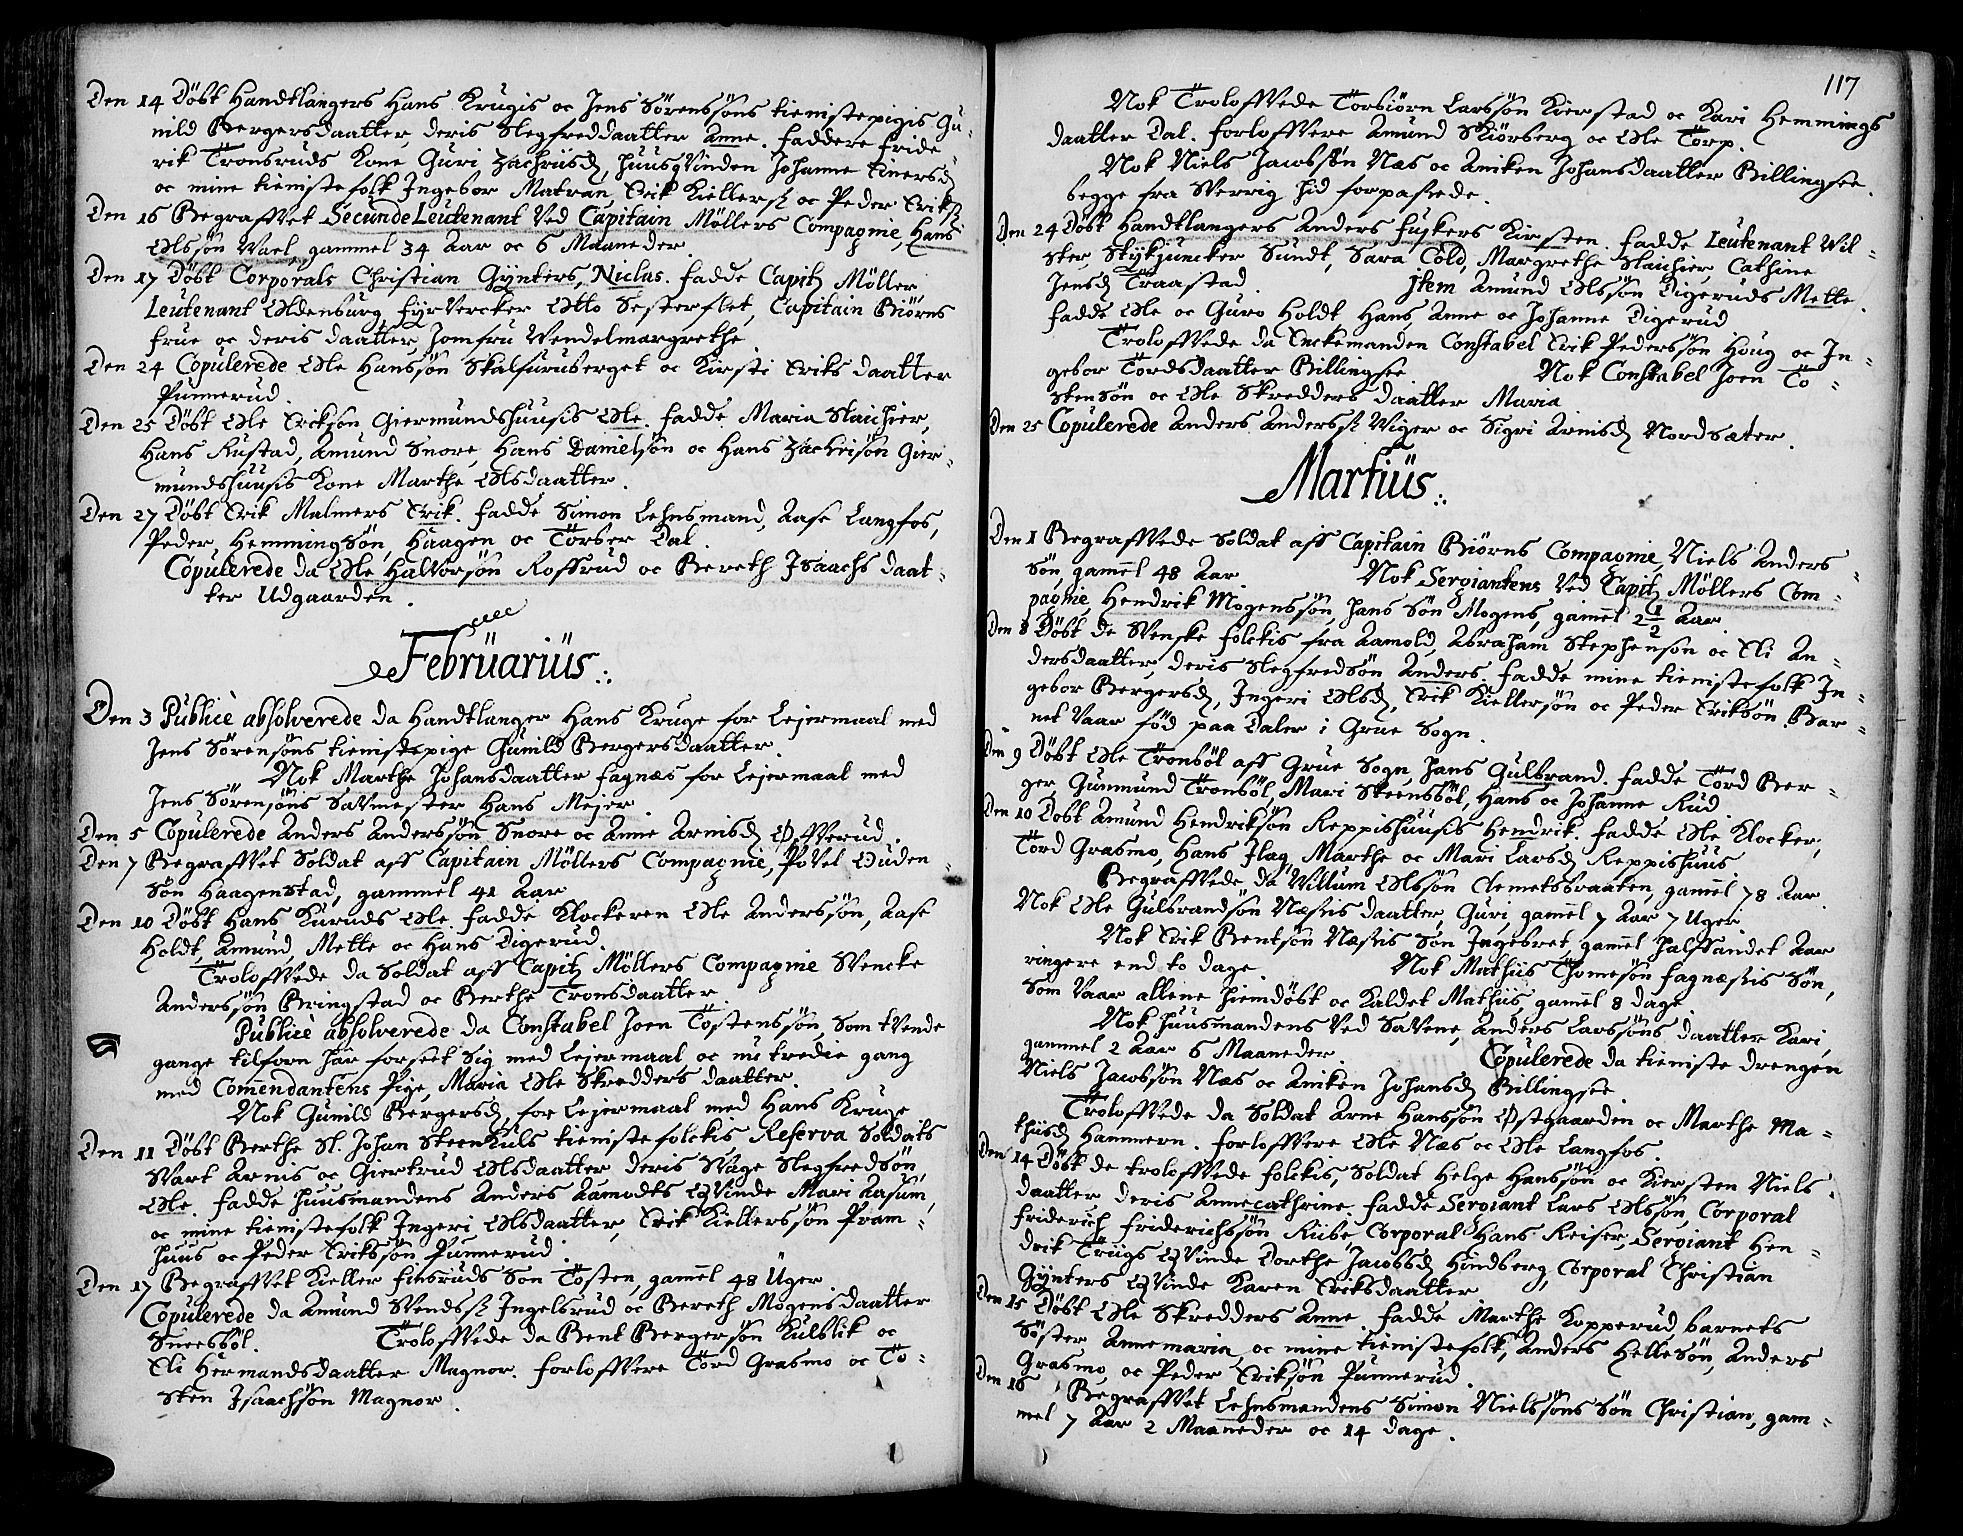 Den 14 Döbt Handtlangers Hans Krugis oc Jens Sörenssöns tienistepigis Gu-
nild Bergersdaatter, deris Slegfreddaatter Anne. Faddere Fride-
rik Tronsruds Kone Guri Zachriisd, Huusqvinden Johanne Einersd
oc mine tienistefolk Ingebor Matran, Erik Kiellers: oc Peder Eriks:
Den 16 Begraffvet Secunde Leutenant Ved Capitain Möllers Compagnie, Hans
Olssön Wael, gammel 34 Aar oc 6 Maaneder.
Den 17 Döbt Corporals Christian Gÿnters, Niclas. Fadde Capit: Möller
Leutenant Oldenburg, Fyrvercker Otto Sesterflet, Capitain Biörns
Frue oc deris daatter, Jomfru Wendelmargrethe
Den 24 Copulerede Ole Hanssön Skalfuruberget oc Kirsti Eriks daatter
Punnerud.
Den 25 Döbt Ole Erikson Giermundshuusis Ole. Fadde Maria Slaichier,
Hans Rustad, Amund Snore, Hans Danielsön oc Hans Zachrisön Gier-
mundshuusis Kone Marthe Olsdaatter.
Den 27 Döbt Erik Malmers Erik. Fadde Simon Lehnsmand, Aase Langfos,
Peder Hemmingsön, Haagen oc Torber Dal
Copulerede da Ole Halvorsön Roffrud oc Bereth Isaachs daat-
ter Udgaarden.
Februarius:
Den 3 Publicè absolverede da Handtlanger Hans Kruge for Leiermaal med
Jens Sörensöns tienistepige Gunild Bergersdaatter.
Nok Marthe Johansdaatter Fagnæs for Leiermaal med
Jens Sörensöns Savmester Hans Mejer
Den 5 Copulerede Anders Anderssön Snore oc Anne Arnisd Öfverud.
Den 7 Begraffvet Soldat aff Capitain Möllers Compagnie, Povel Ouden-
sön Haagenstad, gammel 41 Aar
Den 10 Döbt Hans Kuruds Ole. Fadde Klockeren Ole Anderssön, Aase
Holdt, Amund, Mette oc Hans Digerud.
Troloffvede da Soldat aff Capit: Möllers Compagnie Svencke
Anderssön Bringstad oc Berthe Tronsdaatter
Publicè absolverede da Constabel Joen Tostenssön, som tvende
gange tilforn har forseet sig med Leiermaal oc nu tredie gang
med Commendantens Pige, Maria Ole Skredders daatter.
Nok Gunild Bergersd, for Leiermaal med Hans Kruge
Den 11 Döbt Berthe Sl. Johan Steenkuls tienistefolckis Reserva Soldats
Svart Arnis oc Giertrud Olsdaatter deris Svage Slegfredsön,
Ole. Fadde Huusmandens Anders Aamodts Qvinde Mari Aasum,
oc mine tienistefolk Ingeri Olsdaatter, Erik Kiellerssön Pram-
huus oc Peder Erikssön Punnerud.
Den 17 Begraffvet Kieller Finsruds Sön Tosten, gamel 48 Uger
Copulerede da Amund Svends: Ingelsrud oc Bereth Mogensdaatter
Sneesböl. Troloffvede da Bent Bergersön Kulblik oc
Eli Hermandsdaatter Magnor. Forloffvere Tord Grasmo oc To-
sten Isaachsön Magnor.
117
Nok Troloffvede Torbiörn Larssön Kierstad oc Kari Hemmings
daatter Dal. Forloffvere Amund Skiörberg oc Ole Torp.
Nok Niels Jacobsön Næs oc Aniken Johansdaatter Billingsee.
begge fra Sverrig hid forpasserede.
Den 24 Döbt Handtlangers Anders Fuskers Kirsten. Fadde Leutenant Wil-
ster, Stykjuncker Sundt, Sara Cold, Margrethe Slaichier, Cathine
Jensd Traastad. Item Amund Olssön Digeruds Mette.
Fadde Ole oc Guro Holdt, Hans, Anne oc Johanne Digerud
Troloffvede da Enckemanden Constabel Erik Pederssön Houg oc In-
gebor Tordsdaatter Billingsee Nok Constabel Joen To-
stensön oc Ole Skredders daatter Maria
Den 25 Copulerede Anders Anders: Wiger oc Sigri Arnisd Nordsæter.
Martius:
Den 1 Begraffvede Soldat aff Capitain Biörns Compagnie, Niels Anders-
Sön, gamel 48 Aar. Nok Sergiantens Ved Capit: Möllers Com-
pagnie, Hendrik Mogenssön, Hans Sön Mogens, gamel 2 1/2 Aar
Den 8 Döbt de Svenske folckis fra Aamold, Abraham Stephenson oc Eli An-
dersdaatter, deris Slegfredsön Anders. Fadde mine tienistefolk In-
gebor Bergersd, Ingeri Olsd, Erik Kiellersön oc Peder Eriksön. Bar-
net Vaar föd paa Daler i Grue Sogn.
Den 9 Döbt Ole Tronböl aff Grue Sogn, Hans Gulbrand. Fadde Tord Ber-
ger, Gunmund Tronböl, Mari Steensböl, Hans oc Johanne Rud
Den 10 Döbt Amund Hendriksön Reppishuusis Hendrik. Fadde Ole Klocker,
Tord Grasmo, Hans Ilag, Marthe oc Mari Larsd Reppishuus
Begraffvede da Villum Olssön Clemetsbraaten, gamel 78 Aar.
Nok Ole Gulbrandsön Næssis daatter, Guri, gamel 7 Aar 7 Uger
Nok Erik Bentsön Næssis Sön Ingebret, gamel halffandet Aar
ringere end to dage. Nok Mathis Thomesön Fagnæssis Sön,
Som Vaar allene hiemdöbt oc Kaldet Mathis gamel 8 dage
Nok Huusmandens Ved Savene, Anders Larssöns daatter Kari,
gammel 2 Aar 6 Maaneder. Copulerede da tieniste drengen
Niels Jacobsön Næs oc Aniken Johansd Billingsee.
Troloffvede da Soldat Arne Hanssön Östgaarden oc Marthe Ma-
thiisd Hammern. Forloffvere Ole Næs oc Ole Langfos.
Den 14 Döbt de troloffvede folckis, Soldat Helge Hanssön oc Kiersten Niels-
daatter deris Annecathrine. Fadde Sergiant Lars Olssön, Corporal
Friderich Friderichssön Riibe, Corporal Hans Reiser, Sergiant Hen-
drik Truigs Qvinde Dorthe Jacobsd Hindberg, Corporal Christian
Gÿnters Qvinde Karen Eriksdaatter
Den 15 Döbt Ole Skredders Anne. Fadde Marthe Kopperud, barnets
Söster Annemaria, oc mine tienistefolk, Anders Hellesön, Anders
Grasmo, oc Peder Eriksön Punnerud.
Den 16 Begraffvet Lehnsmandens Simon Nielssöns Sön Christian, gam-
mel 7 Aar 2 Maaneder oc 14 dage.